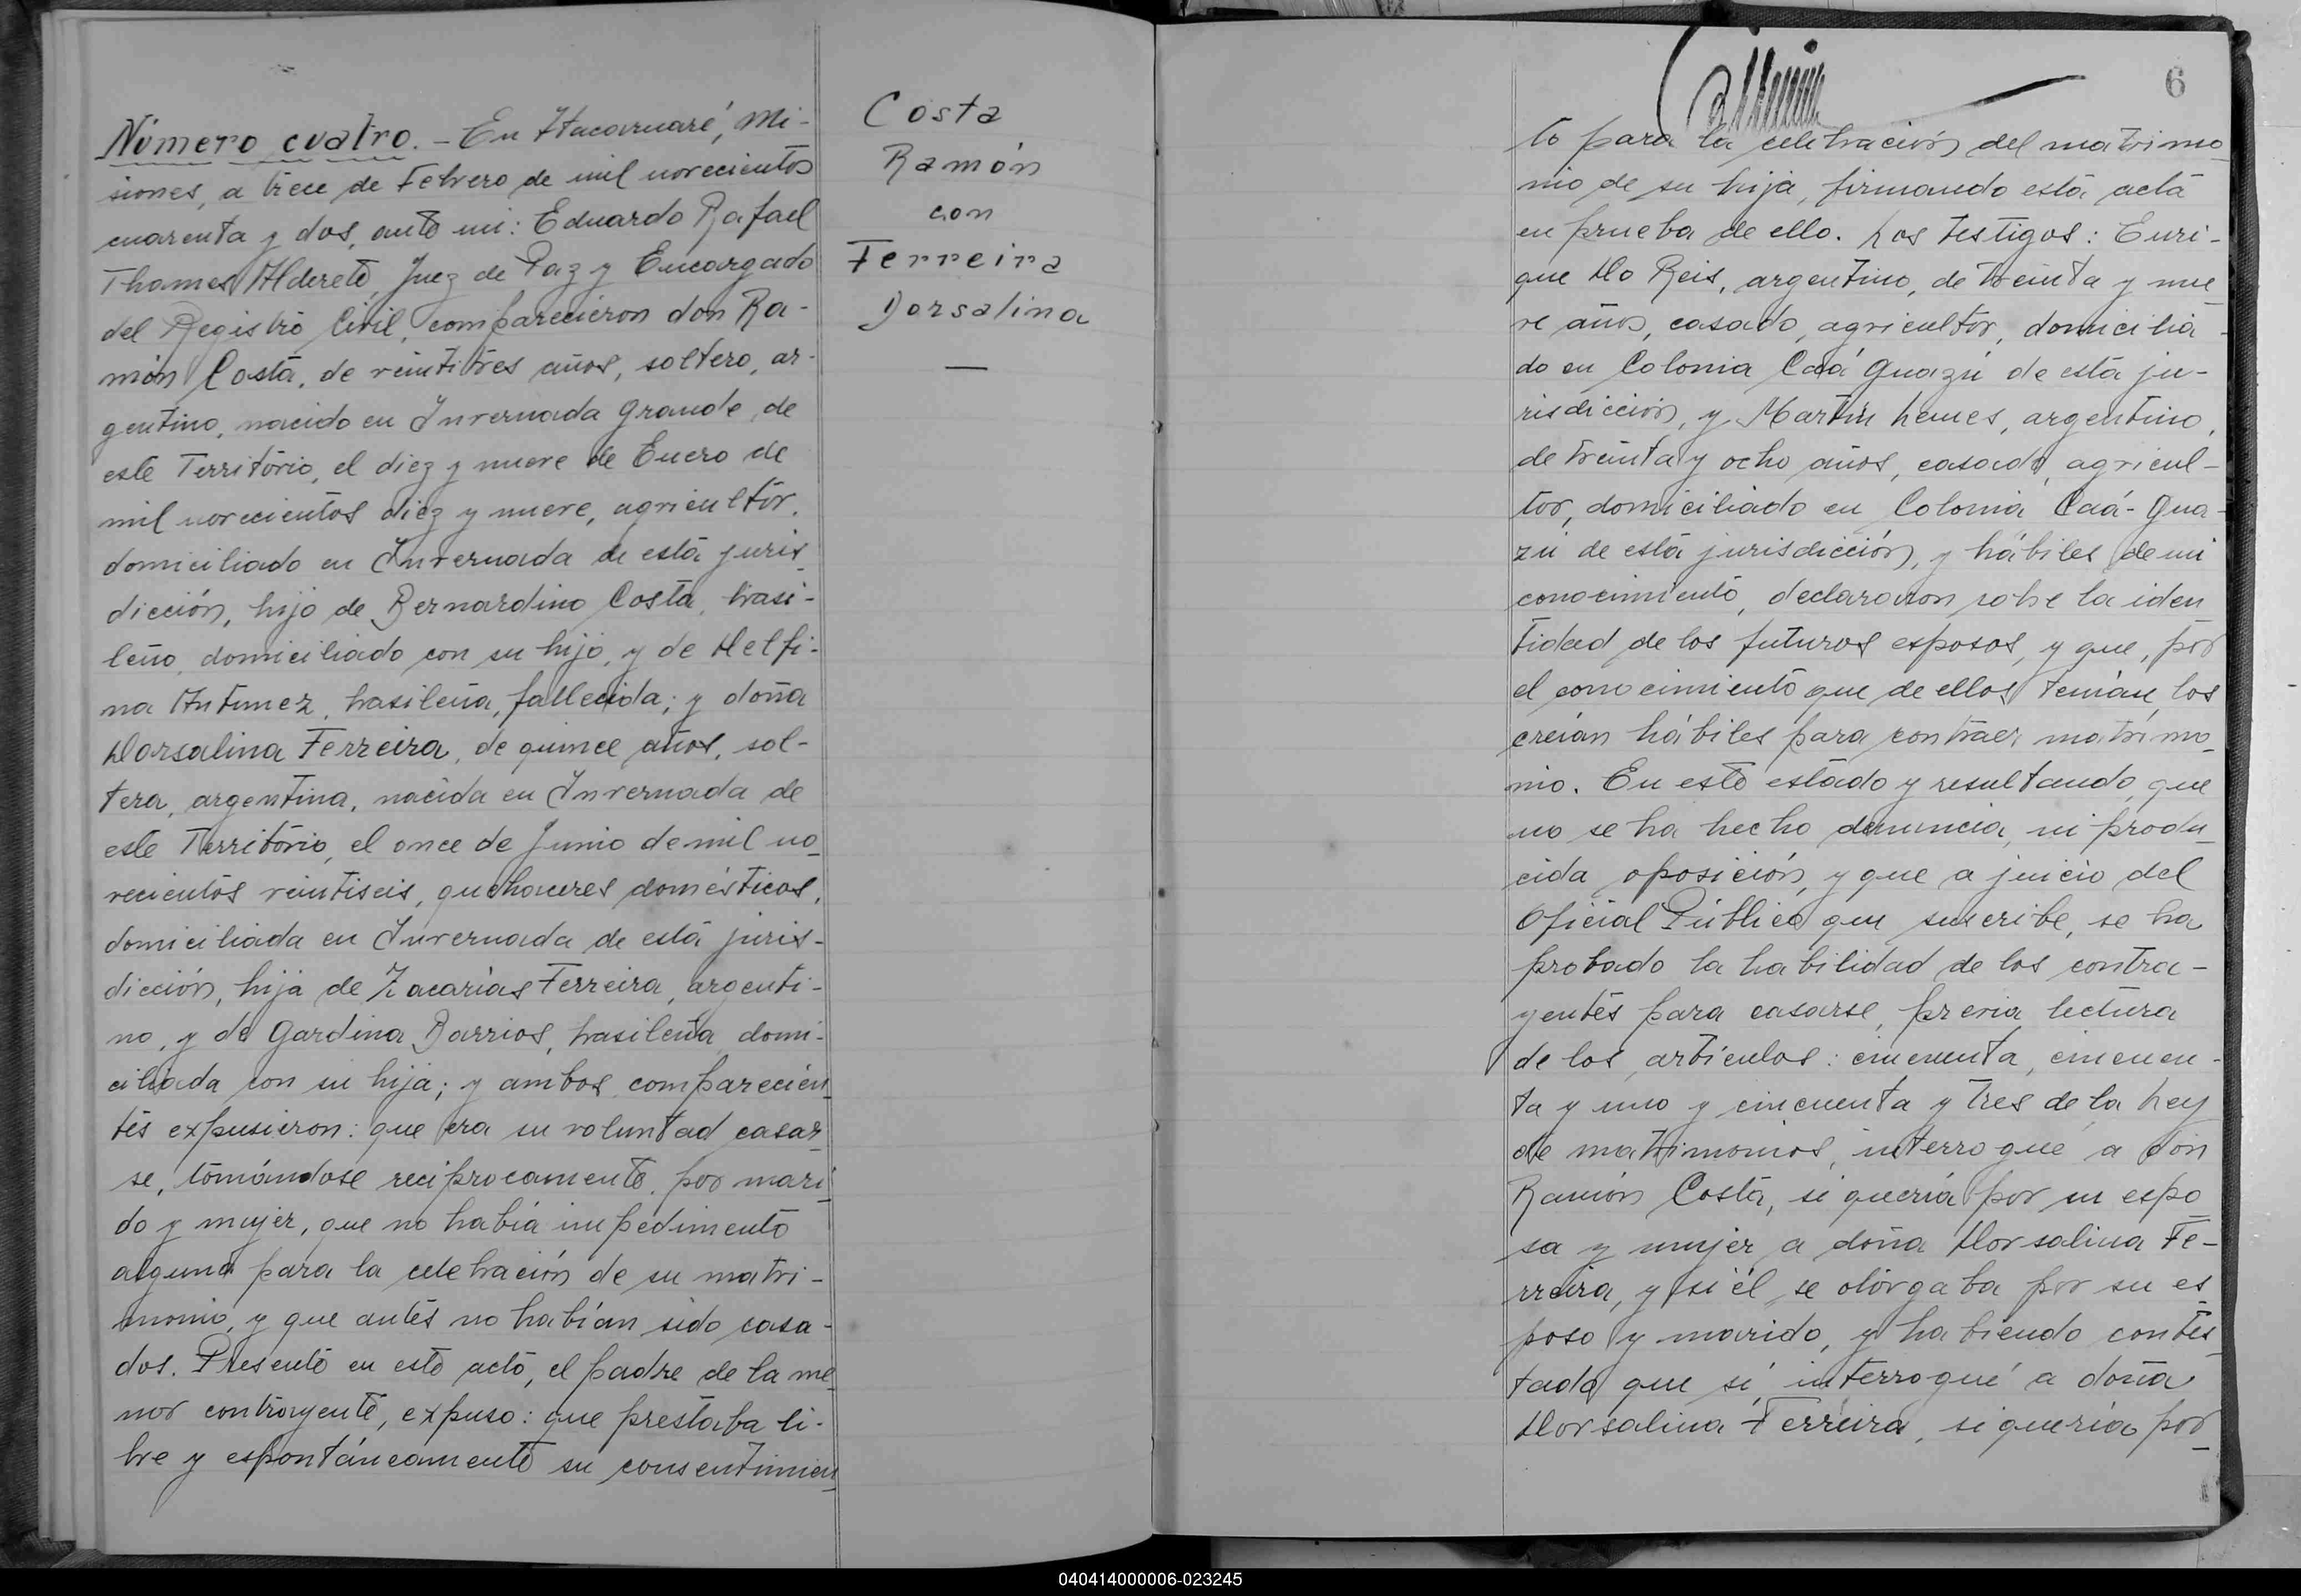 Número cuatro. - En Itacaruaré, Mi-
siones, a trece de Febrero de mil novecientos
cuarenta y dos, ante mi: Eduardo Rafael
Thames Alderete, Juez de Paz y Encargado
del Registro Civil, comparecieron don Ra-
món Costa, de veintitres años, soltero, ar-
gentino, nacido en Invernada Grande, de
este Territorio, el diez y nueve de Enero de
mil novecientos diez y nueve, agricultor,
domiciliado en Invernada de esta juris_
dicción, hijo de Bernardino Costa, brasi-
leño, domiciliado con su hijo, y de Delfi-
na Antunez, brasileña, fallecida; y doña
Dorsalina Ferreira, de quince años, sol-
tera, argentina, nacida en Invernada de
este Territorio, el once de Junio de mil no_
vecientos veintiseis, quehaceres domésticos,
domiciliada en Invernada de esta juris-
dicción, hija de Zacarías Ferreira, argenti-
no, y de Gardina Barrios, brasileña, domi-
ciliada con su hija; y ambos comparecien_
tes expusieron: que era su voluntad casar_
se, tomándose reciprocamente, por mari_
do y mujer, que no había impedimento
alguno para la celebración de su matri-
monio, y que antes no habían sido casa-
dos. Presente en este acto, el padre de la me_
nor contrayente, expuso: que prestaba li-
bre y espontáneamente su consentimien_
Costa
Ramón
con
Ferreira
Dorsalina
—
6
to para la celebración del matrimo_
nio de su hija, firmando esta acta
en prueba de ello. Los testigos: Enri-
que Do Reis, argentino, de treinta y nue_
ve años, casado, agricultor, domicilia-
do en Colonia Caá Guazú de esta ju-
risdicción, y Martin Lemes, argentino,
de treinta y ocho años, casado, agricul-
tor, domiciliado en Colonia Caá-Gua-
zú de esta jurisdicción, y hábiles, de mi
conocimiento, declararon sobre la iden
tidad de los futuros esposos, y que, por
el conocimiento que de ellos tenían, los
creían hábiles para contraer matrimo_
nio. En este estado y resultando, que
no se ha hecho denuncia, ni produ_
cida oposición, y que a juicio del
Oficial Público que suscribe, se ha
probado la habilidad de los contra-
yentes para casarse, previa lectura
de los artículos: cincuenta, cincuen-
ta y uno y cincuenta y tres de la Ley
de matrimonios, interrogué a don
Ramón Costa, si quería por su espo
sa y mujer a doña Dorsalina Fe-
rreira, y si él se otorgaba por su es_
poso y marido, y habiendo contes_
tado que si, interrogué a doña
Dorsalina Ferreira, si quería por_
040414000006-023245